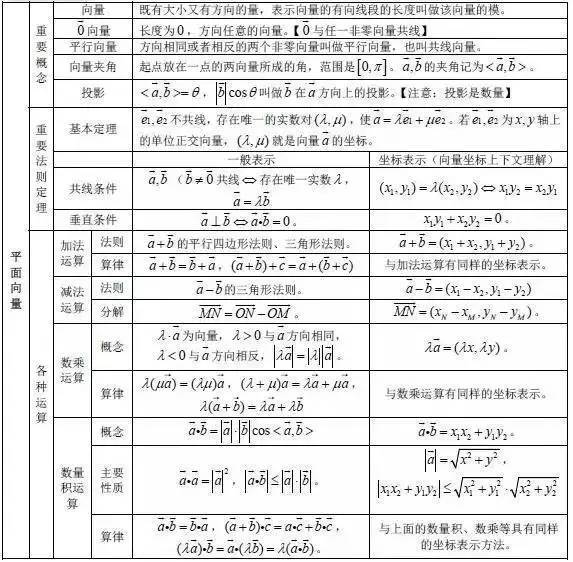 平面向量
重要概念
向量 既有大小又有方向的量，表示向量的有向线段的长度叫做该向量的模。
$\vec{0}$向量 长度为0，方向任意的向量。【$\vec{0}$与任一非零向量共线】
平行向量 方向相同或者相反的两个非零向量叫做平行向量，也叫共线向量。
向量夹角 起点放在一点的两向量所成的角，范围是$[0,\pi]$。$\vec{a},\vec{b}$的夹角记为$<\vec{a},\vec{b}>$。
投影 $<\vec{a},\vec{b}>=\theta$，$|\vec{b}|\cos\theta$叫做$\vec{b}$在$\vec{a}$方向上的投影。【注意：投影是数量】
重要法则定理
基本定理 $\vec{e_1},\vec{e_2}$不共线，存在唯一的实数对$(\lambda,\mu)$，使$\vec{a}=\lambda\vec{e_1}+\mu\vec{e_2}$。若$\vec{e_1},\vec{e_2}$为$x,y$轴上
的单位正交向量，$(\lambda,\mu)$就是向量$\vec{a}$的坐标。
一般表示 坐标表示（向量坐标上下文理解）
共线条件 $\vec{a},\vec{b}$（$\vec{b}\neq\vec{0}$共线$\Leftrightarrow$存在唯一实数$\lambda$，
$\vec{a}=\lambda\vec{b}$ $(x_1,y_1)=\lambda(x_2,y_2)\Leftrightarrow x_1y_2=x_2y_1$
垂直条件 $\vec{a}\perp\vec{b}\Leftrightarrow\vec{a}\bullet\vec{b}=0$。 $x_1y_1+x_2y_2=0$。
各种运算
加法运算
法则 $\vec{a}+\vec{b}$的平行四边形法则、三角形法则。 $\vec{a}+\vec{b}=(x_1+x_2,y_1+y_2)$。
算律 $\vec{a}+\vec{b}=\vec{b}+\vec{a}$，$(\vec{a}+\vec{b})+\vec{c}=\vec{a}+(\vec{b}+\vec{c})$ 与加法运算有同样的坐标表示。
减法运算
法则 $\vec{a}-\vec{b}$的三角形法则。 $\vec{a}-\vec{b}=(x_1-x_2,y_1-y_2)$
分解 $\overrightarrow{MN}=\overrightarrow{ON}-\overrightarrow{OM}$。 $\overrightarrow{MN}=(x_N-x_M,y_N-y_M)$。
数乘运算
概念 $\lambda\cdot\vec{a}$为向量，$\lambda>0$与$\vec{a}$方向相同，
$\lambda<0$与$\vec{a}$方向相反，$|\lambda\vec{a}|=|\lambda||\vec{a}|$。 $\lambda\vec{a}=(\lambda x,\lambda y)$。
算律 $\lambda(\mu\vec{a})=(\lambda\mu)\vec{a}$，$(\lambda+\mu)\vec{a}=\lambda\vec{a}+\mu\vec{a}$，
$\lambda(\vec{a}+\vec{b})=\lambda\vec{a}+\lambda\vec{b}$ 与数乘运算有同样的坐标表示。
数量积运算
概念 $\vec{a}\bullet\vec{b}=|\vec{a}|\cdot|\vec{b}|\cos<\vec{a},\vec{b}>$ $\vec{a}\bullet\vec{b}=x_1x_2+y_1y_2$。
主要性质 $\vec{a}\bullet\vec{a}=|\vec{a}|^2$，$|\vec{a}\bullet\vec{b}|\leq|\vec{a}|\cdot|\vec{b}|$。 $|\vec{a}|=\sqrt{x^2+y^2}$，
$|x_1x_2+y_1y_2|\leq\sqrt{x_1^2+y_1^2}\cdot\sqrt{x_2^2+y_2^2}$
算律 $\vec{a}\bullet\vec{b}=\vec{b}\bullet\vec{a}$，$(\vec{a}+\vec{b})\bullet\vec{c}=\vec{a}\bullet\vec{c}+\vec{b}\bullet\vec{c}$， 与上面的数量积、数乘等具有同样
$(\lambda\vec{a})\bullet\vec{b}=\vec{a}\bullet(\lambda\vec{b})=\lambda(\vec{a}\bullet\vec{b})$。 的坐标表示方法。